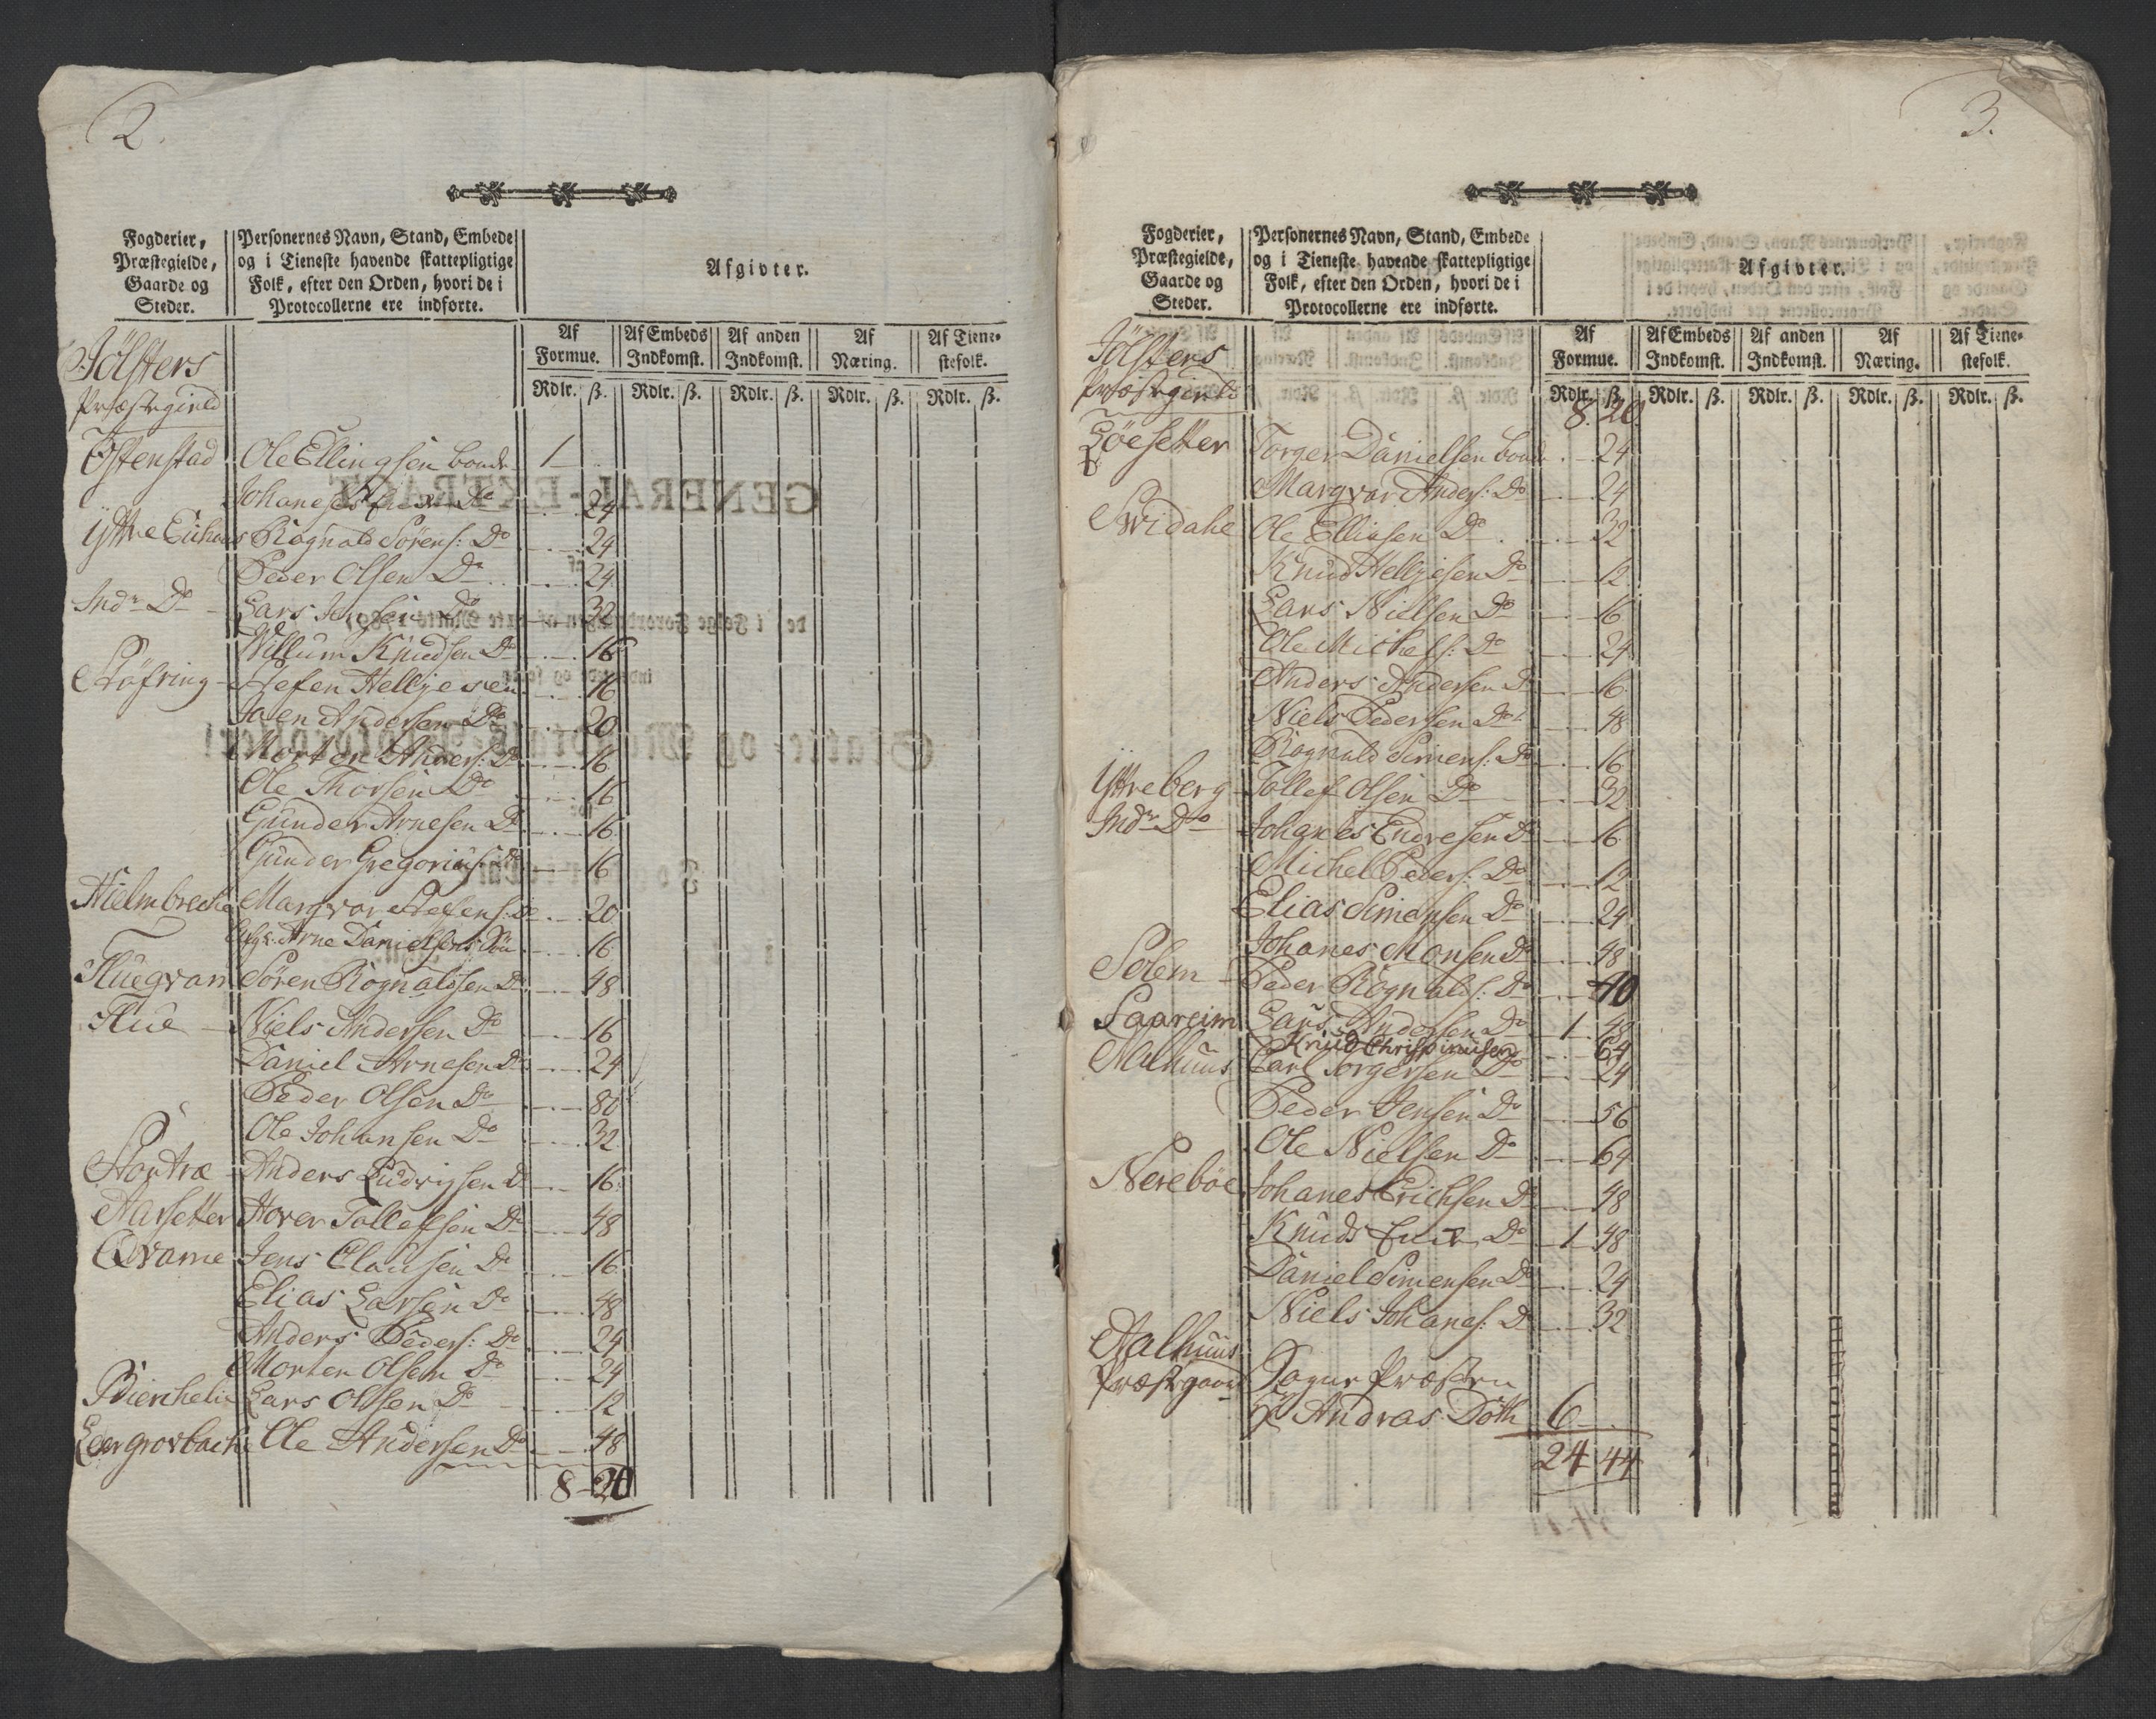 2.
Fogderier, Præstegielde, Gaarde og Steder.
Personernes Navn, Stand, Embede og i Tieneste havende skattepligtige Folk, efter den Orden, hvori de i Protocollerne ere indførte.
Afgivter.
Af Formue. Af Embeds Indkomst. Af anden Indkomst. Af Næring. Af Tienestefolk.
Rdlr. ß. Rdlr. ß. Rdlr. ß. Rdlr. ß. Rdlr. ß.
Jølsters
Præstegield
Østenstad Ole Ellingsen bonde 1
Johanes Do 24
Yttre Eichaas Rognald Sørens: Do 24
Peder Olsen Do 24
Indr Do Lars Jensen Do 32
Willum Knudsen Do 16
Støfring Stefen Helljesen 16
Joen Andersen Do 20
Morten Anders: Do 16
Ole Thorsen Do 16
Gunder Arnesen Do 16
Gunder Gregorius: Do 16
Hielmbreche Margvar Stefens: Do 20
Arne Danielsens 16
Fluegvam Søren Rognaldsen Do 48
Flue Niels Andersen Do 16
Daniel Arnesen Do 24
Peder Olsen Do 80
Ole Johansen Do 32
Stoptræ Anders Ludvigsen Do 16
Aarsetter Hover Tollefsen Do 48
Qvame Jens Clausen Do 16
Elias Larsen Do 48
Anders Peders: Do 24
Morten Olsen Do 24
Bierchelie Lars Olsen Do 12
Leergrovbache Ole Andersen Do 48
8 - 20
3.
Fogderier, Præstegielde, Gaarde og Steder.
Personernes Navn, Stand, Embede og i Tieneste havende skattepligtige Folk, efter den Orden, hvori de i Protocollerne ere indførte.
Afgivter.
Af Formue. Af Embeds Indkomst. Af anden Indkomst. Af Næring. Af Tienestefolk.
Rdlr. ß. Rdlr. ß. Rdlr. ß. Rdlr. ß. Rdlr. ß.
Jølsters
Præstegield
8. 20.
Søesetter Torger Danielsen bonde 24
Margvar Anders: Do 24
Svidahl Ole Ellingsen Do 32
Knud Helljesen Do 12
Lars Nielsen Do 16
Ole Michels: Do 24
Anders Andersen Do 16
Niels Pedersen Do 48
Rognald Simens: Do 16
Yttreberg Tollef Olsen Do 32
Indr Dto Johanes Endresen Do 16
Michel Peders: Do 12
Elias Simensen Do 24
Johanes Monsen Do 48
Solem Peder Rognalds: Do 40
Saareim Lars Andersen Do 1 48
Knud Christiansen 64
Aalhuus Carl Torgersen Do 24
Peder Jensen Do 56
Ole Nielsen Do 64
Nerebøe Johanes Erichsen Do 48
Knuds Enke Do 1 48
Daniel Simensen Do 24
Niels Johanes: Do 32
Aalhuus
Præstegaard Sogne Præsten
Hr Andras Døth 6
24 44